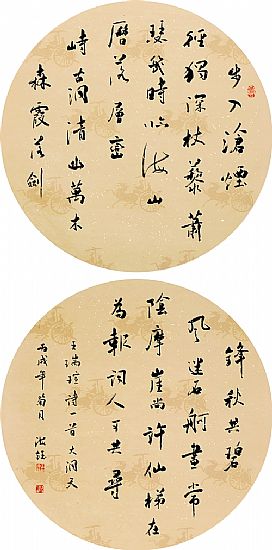 步入滄煙
徑獨深杖藜蕭
瑟幾時臨海山
曆落層巒
峙古洞清幽萬木
森霞若劍
鋒秋共碧
風迷石舸晝常
陰摩崖尚許仙梯在
為報詞人可共尋
王瑞瑄詩一首大洞天
丙戌年菊月